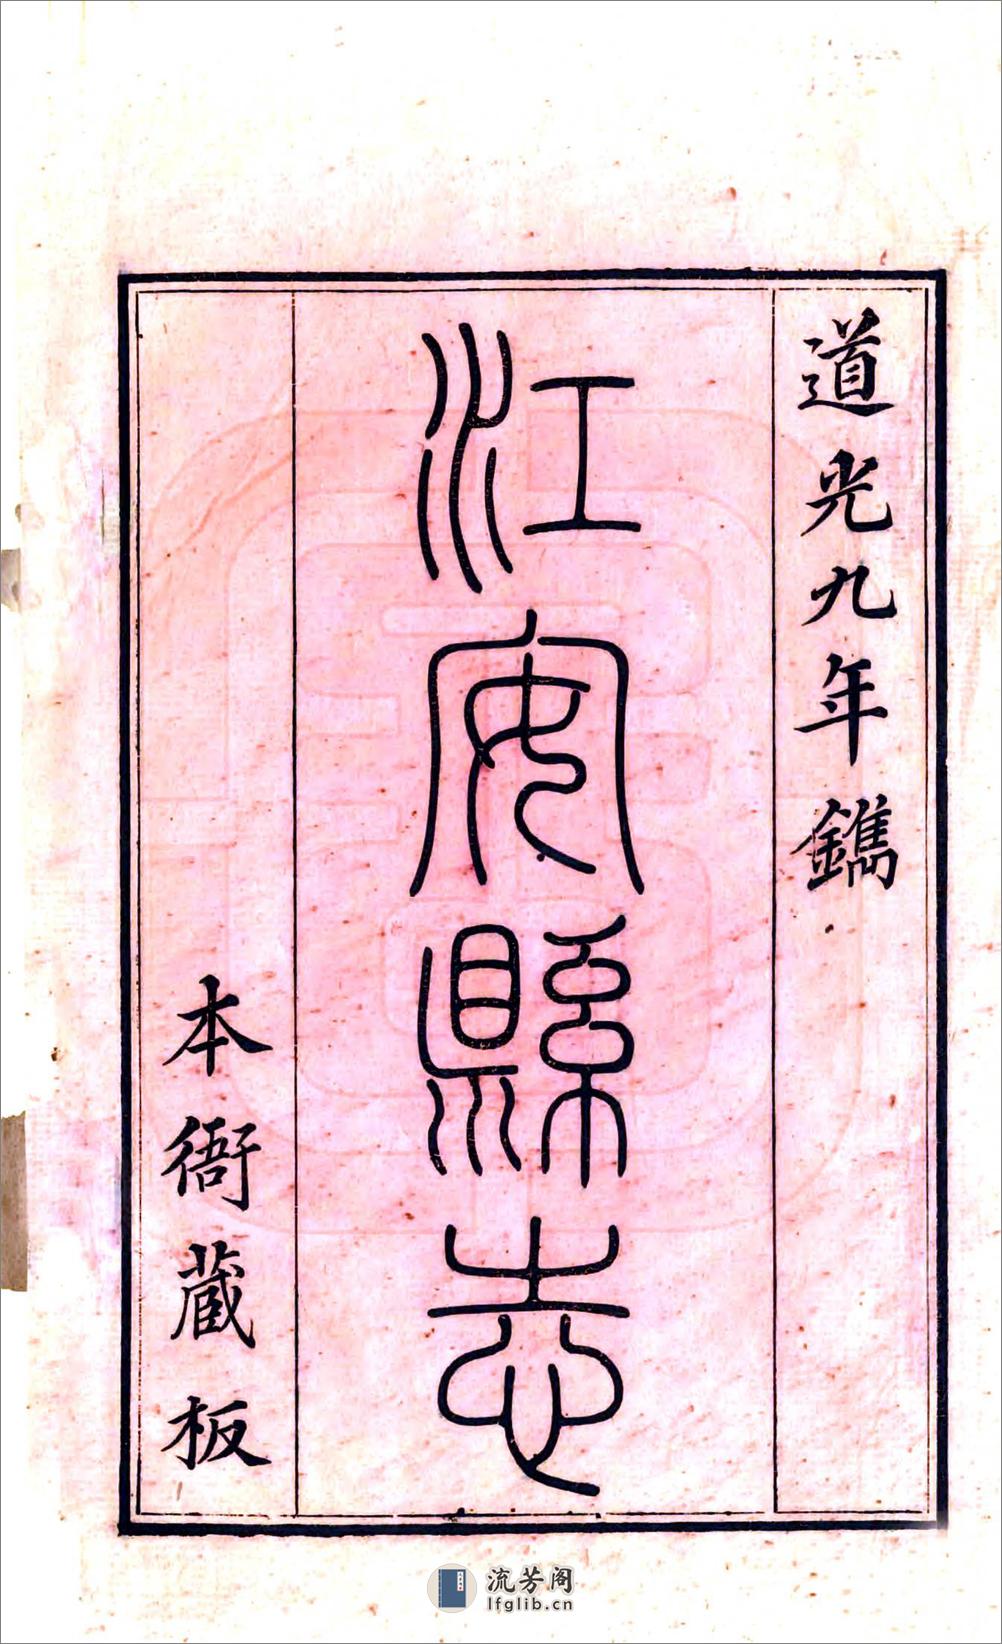 道光九年鐫
江安縣志
本衙藏板
流芳阁
lfglib.cn